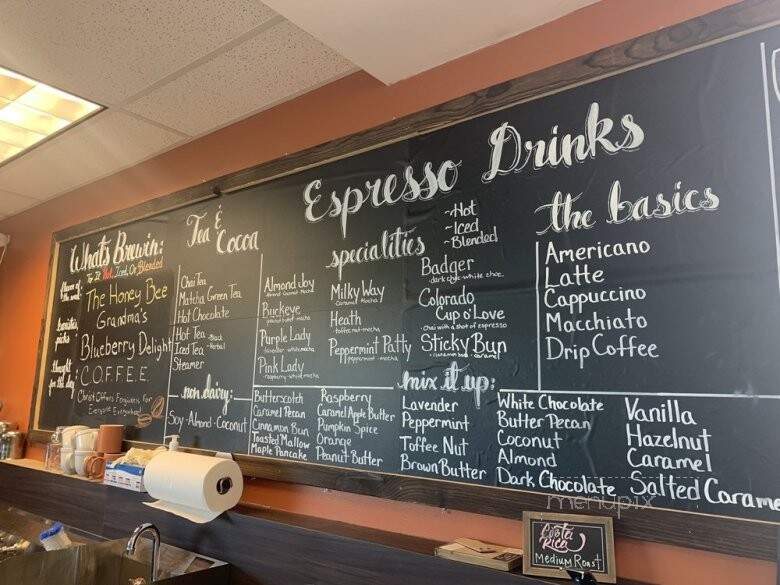 What's Brewin:
Try It Hot, Iced, Or Blended
Flavor of
the week:
The Honey Bee
barista
picks
Grandma's
Blueberry Delight
thought
for the day
C.O.F.F.E.E.
Christ Offers Forgiveness For
Everyone Everywhere!
Tea &
Cocoa
Chai Tea
Matcha Green Tea
Hot Chocolate
Hot Tea -Black
-Herbal
Iced Tea
Steamer
non dairy:
Soy-Almond-Coconut
Espresso Drinks
specialities
~Hot
~Iced
~Blended
Almond Joy
Almond Coconut Mocha
Buckeye
peanut butter mocha
Purple Lady
lavender white mocha
Pink Lady
raspberry-white mocha
Milky Way
Caramel Mocha
Heath
toffee nut-mocha
Peppermint Patty
peppermint-mocha
Badger
dark choc-white choc.
Colorado
Cup o'Love
-chai with a shot of espresso
Sticky Bun
-cinnamon bun -caramel
the basics
Americano
Latte
Cappuccino
Macchiato
Drip Coffee
mix it up:
Butterscotch
Caramel Pecan
Cinnamon Bun
Toasted Mallow
Maple Pancake
Raspberry
Caramel Apple Butter
Pumpkin Spice
Orange
Peanut Butter
Lavender
Peppermint
Toffee Nut
Brown Butter
White Chocolate
Butter Pecan
Coconut
Almond
Dark Chocolate
Vanilla
Hazelnut
Caramel
Salted Carame
menupix
Costa
Rica
Medium Roast